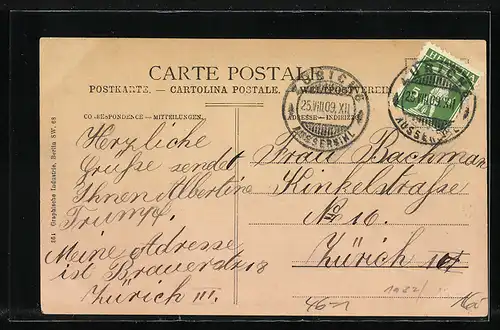 CARTE POSTALE
POSTKARTE. — CARTOLINA POSTALE. — WELTPOSTVEREIN
CORRESPONDENCE — MITTEILUNGEN.
ADRESSE — INDIRIZZO
ZÜRICH 6
25.VIII.09.XII
AUSSERSIHL
HELVETIA
ZÜRICH 6
25.VIII.09.XII
AUSSERSIHL
104 Graphische Industrie, Berlin SW. 68
Herzliche
Grüsse sendet
Ihnen Albertine
Trumpf.
Meine Adresse
ist Brauerstr 18
Zürich III.
Frau Bachman
Kinkelstrasse
No 10.
Zürich IV